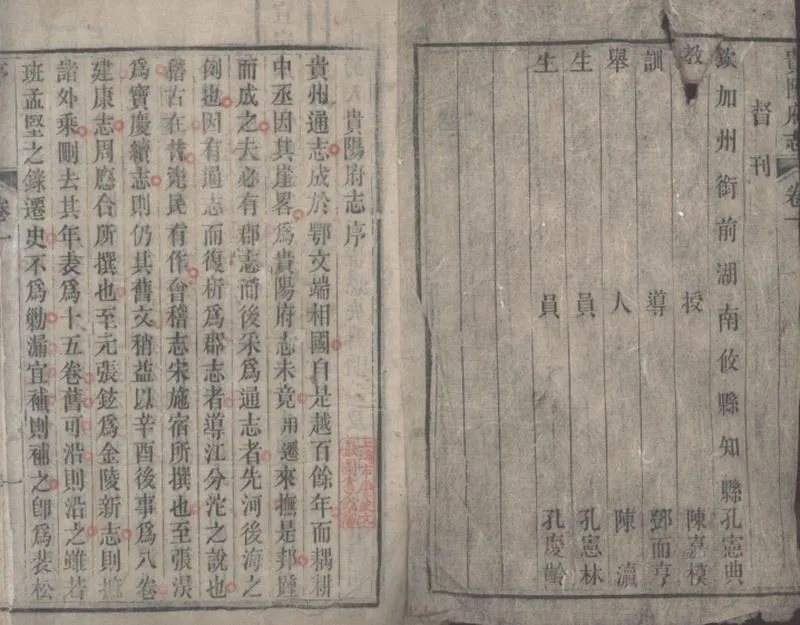 貴陽府志 卷一
督刊
欽加州銜前湖南攸縣知縣孔憲典
教授陳嘉模
訓導鄧而亨
舉人陳瀛
生員孔憲林
生員孔慶齡
貴陽府志序
貴州通志成於鄂文端相國自是越百餘年而耦耕
中丞因其崖畧爲貴陽府志未竟用遷來撫是邦踵
而成之夫必有郡志而後采爲通志者先河後海之
例也因有通志而復析爲郡志者導江分沱之說也
稽古在昔先民有作會稽志宋施宿所撰也至張淏
爲寶慶續志則仍其舊文稍益以辛酉後事爲八卷
建康志周應合所撰也至元張鉉爲金陵新志則摭
諸外乘刪去其年表爲十五卷舊可沿則沿之雖若
班孟堅之錄遷史不爲勦漏宜補則補之卽爲裴松
序
卷一
一